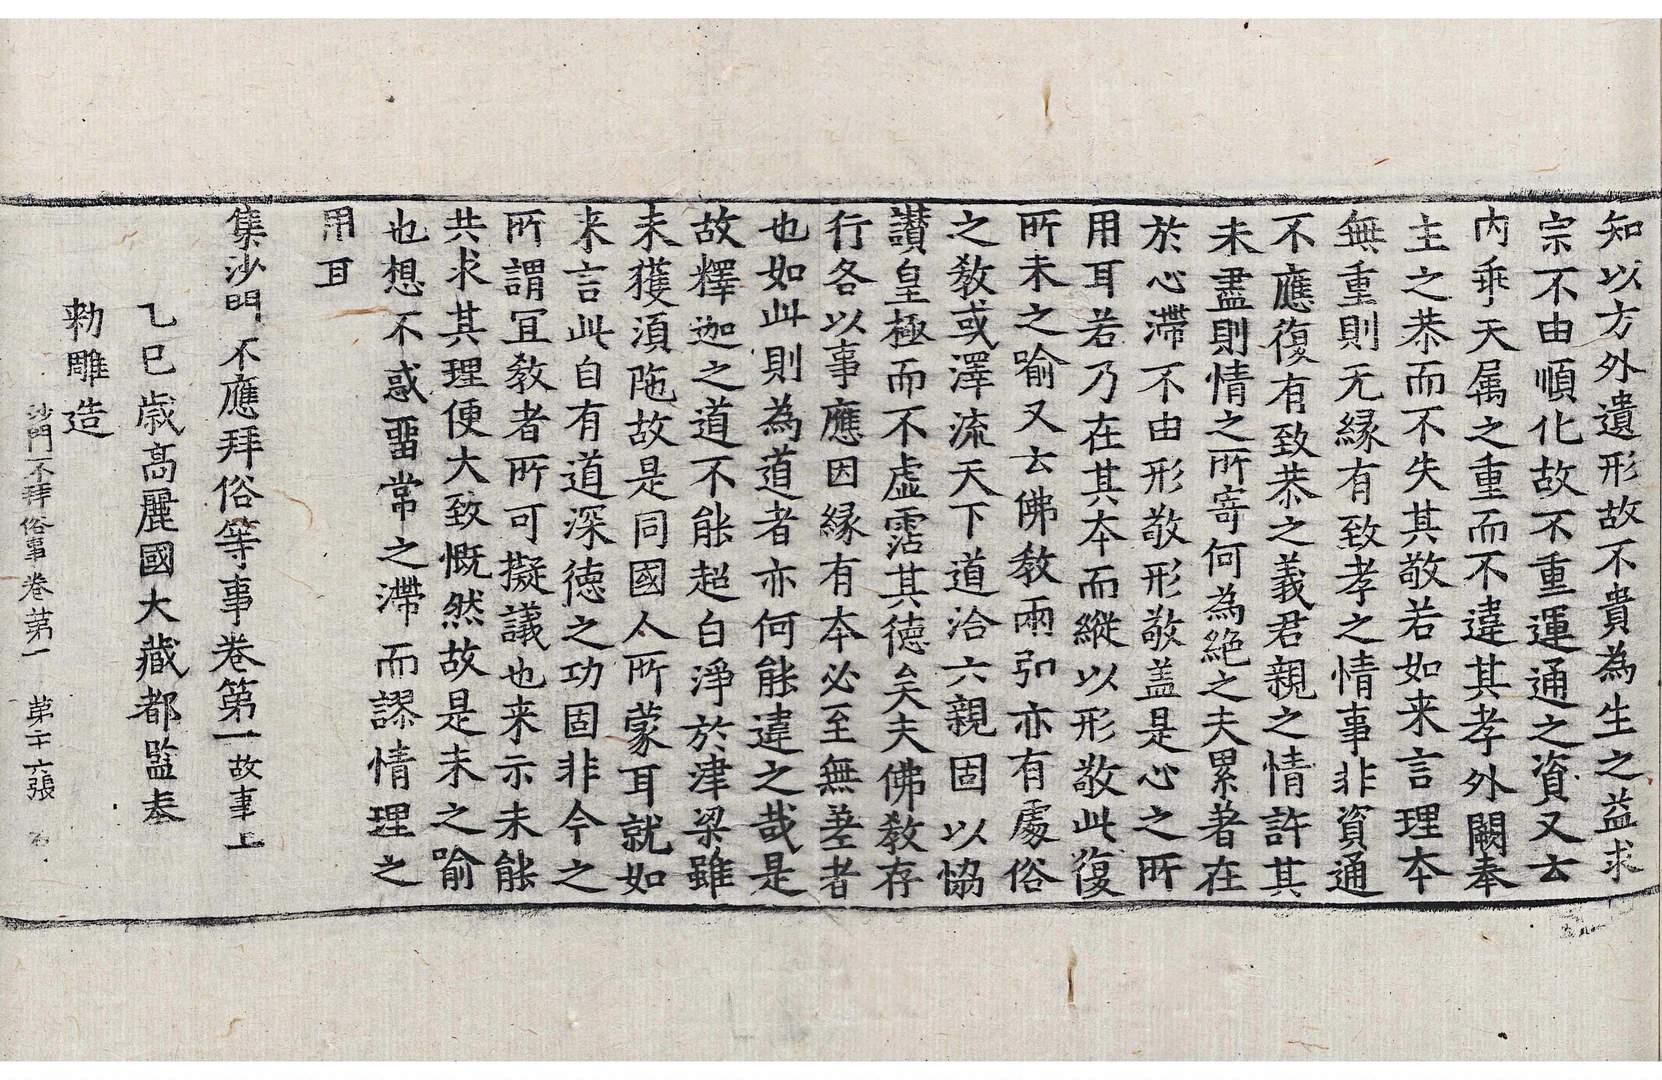 知以方外遺形故不貴為生之益求
宗不由順化故不重運通之資又云
内乖天属之重而不違其孝外闕奉
主之恭而不失其敬若如来言理本
無重則无緣有致孝之情事非資通
不應復有致恭之義君親之情許其
未盡則情之所寄何為絶之夫累著在
於心滯不由形敬形敬盖是心之所
用耳若乃在其本而縱以形敬此復
所未之喻又云佛教兩弘亦有處俗
之教或澤流天下道洽六親固以恊
讃皇極而不虚霑其德矣夫佛教存
行各以事應因緣有本必至無差者
也如此則為道者亦何能違之哉是
故釋迦之道不能超白淨於津梁雖
未獲湏陁故是同國人所蒙耳就如
来言此自有道深德之功固非今之
所謂冝教者所可擬議也来示未能
共求其理便大致慨然故是未之喻
也想不惑畱常之滯而謬情理之
用耳
集沙門不應拜俗等事卷第一 故事上
乙巳歳高麗國大藏都監奉
勑雕造
沙門不拜俗事卷第一 第二十六張